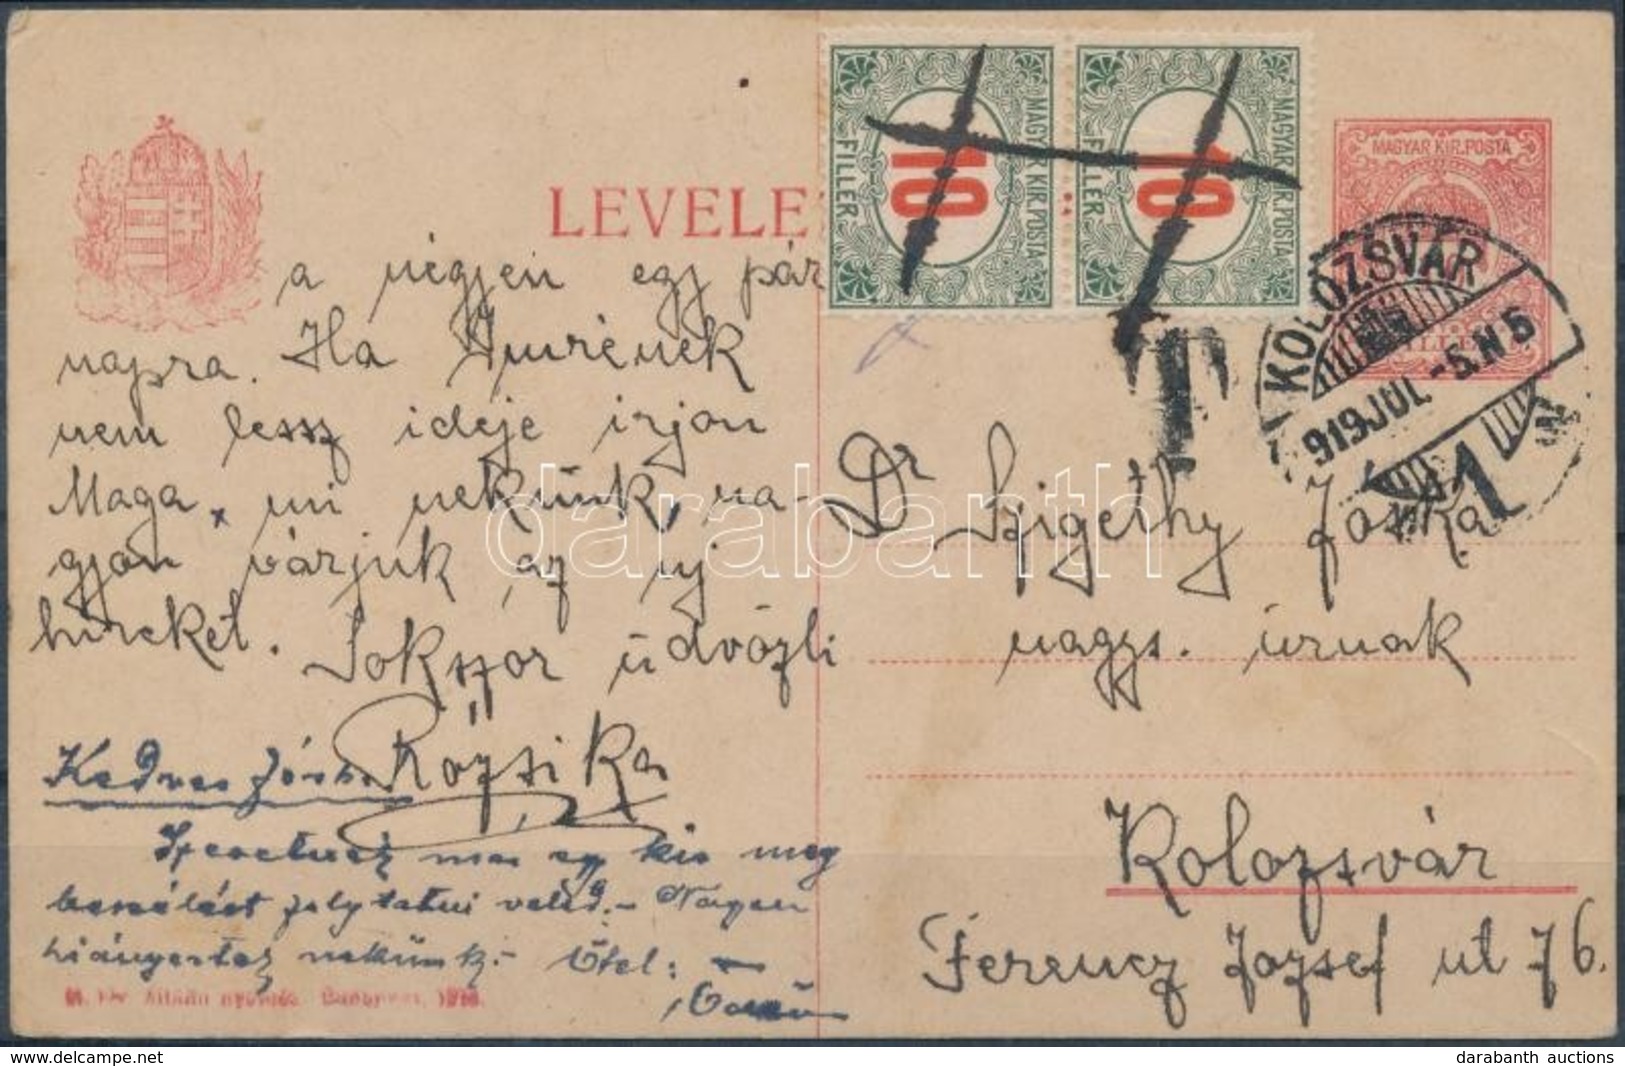 LEVELE
MAGYAR KIR. POSTA
10
FILLÉR
MAGYAR KIR. POSTA
10
FILLÉR
MAGYAR KIR. POSTA
T
KOLOZSVÁR
919 JUL. -5. N 5
1
a négyen egy pár
napra. Ha Imrének
nem lessz ideje irjon
Maga, mi nekünk, na-
gyon várjuk az uj
hireket. Sokszor üdvözli
Rózsika
Kedves Jóska
Szeretnék már egy kis meg
beszélést folytatni veled.- Nagyon
hiányoztok nekünk.- Ölel:
Dr Szigethy Jóska
nagys. úrnak
Kolozsvár
Ferencz József ut 76.
M. kir. állami nyomda. Budapest, 1918.
darabanth
darabanth auctions